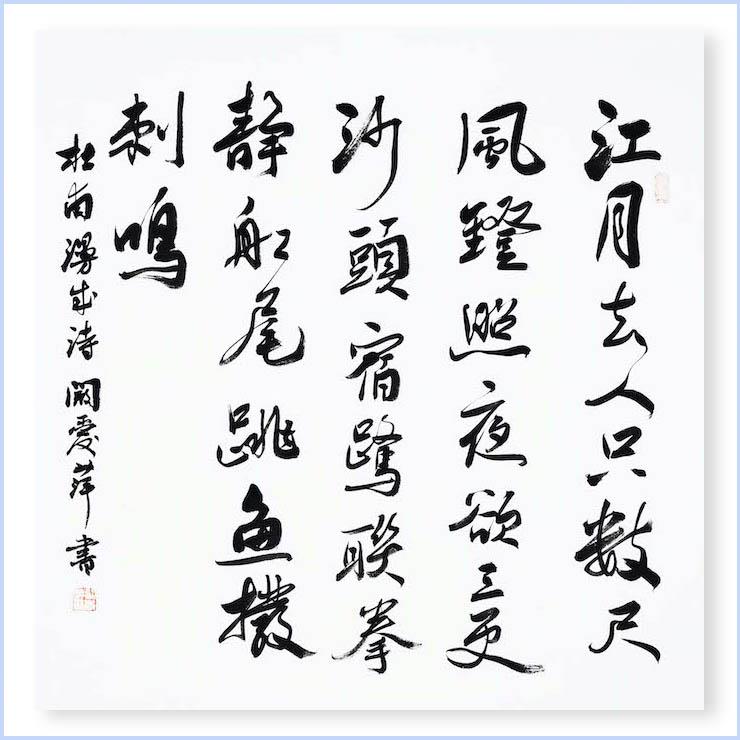 江月去人只數尺
風鐙照夜欲三更
沙頭宿鷺聯拳
靜船尾跳魚撥
刺鳴
杜甫漫成詩 闞愛萍書